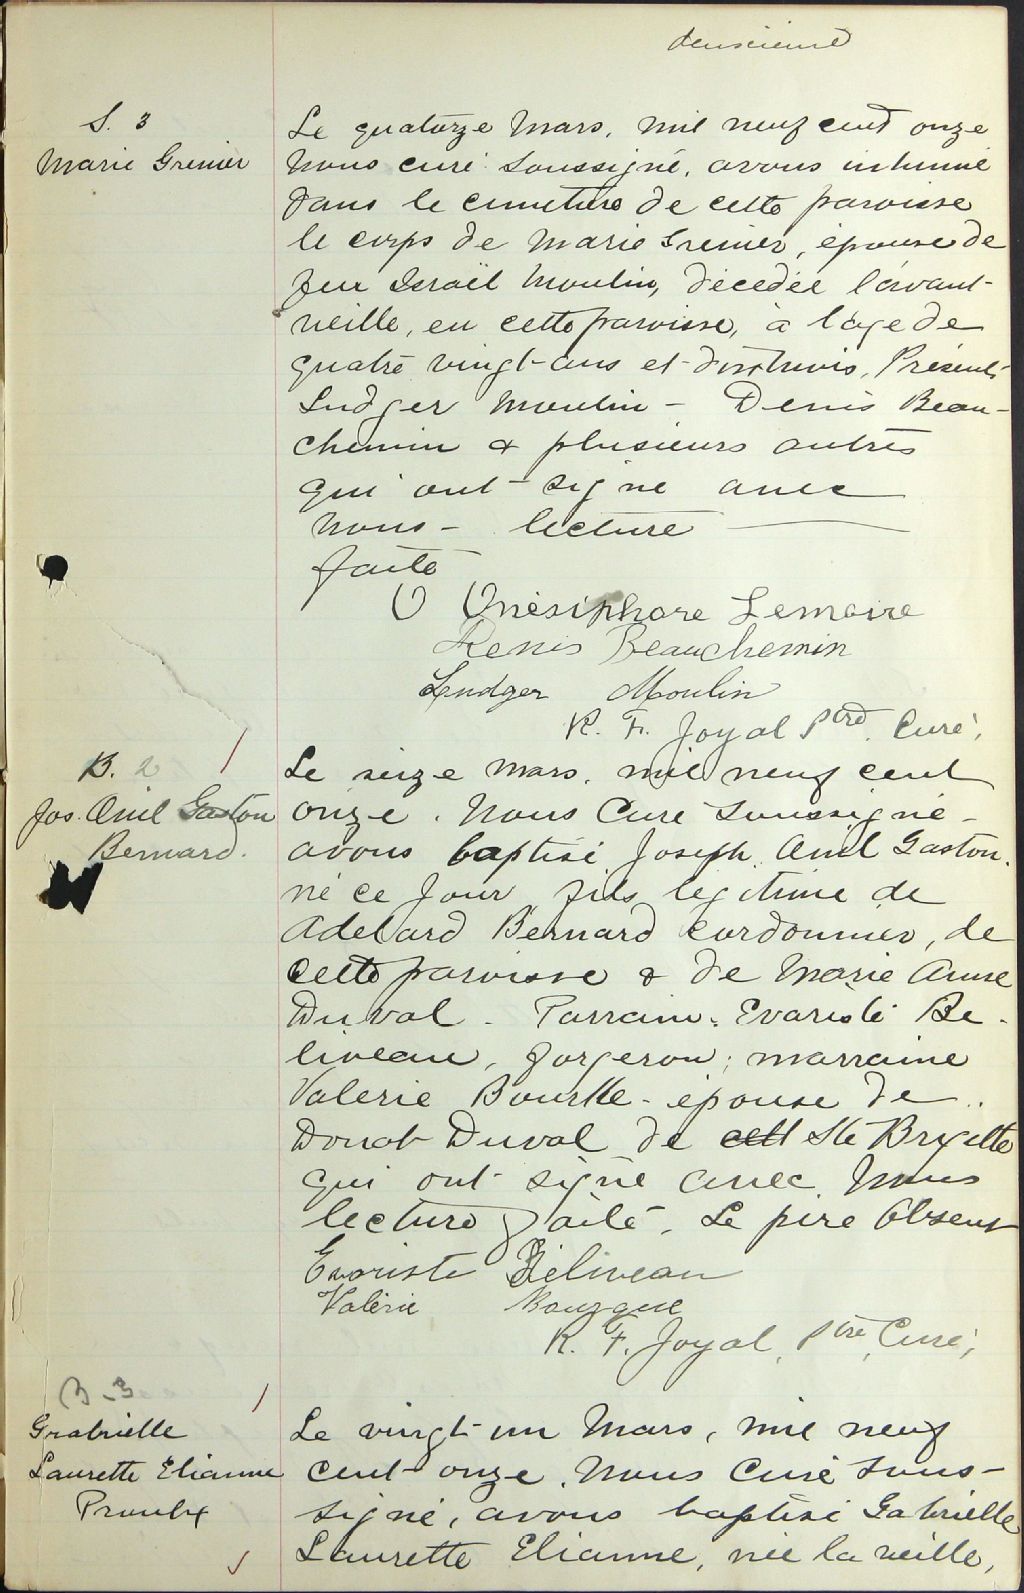 deuxième
S. 3
Marie Grenier
Le quatorze Mars, mil neuf cent onze
Nous curé soussigné, avons inhumé
dans le cimetière de cette paroisse
le corps de Marie Grenier, épouse de
feu Israël Moulin, décédée l'avant-
veille, en cette paroisse, à l'age de
quatre vingt-ans et trois, Présents
Ludger Moulin - Denis Beau-
chemin & plusieurs autres
qui ont signé avec
nous - lecture
faite
O Onésiphore Lemaire
Denis Beauchemin
Ludger Moulin
R. F. Joyal Ptre, Curé,
B. 2
Jos. Gaston
Bernard.
Le seize mars, mil neuf cent
onze. Nous Curé Soussigné -
avons baptisé Joseph Gaston.
né ce jour, fils légitime de
Adelard Bernard cordonnier, de
cette paroisse & de Marie Anne
Duval - Parrain. Evariste Be-
liveau, forgeron; marraine
Valerie - épouse de
Donat Duval de cett Ste Brigitte
qui ont signé avec nous
lecture faite. Le père Absent
Evariste Béliveau
Valérie Bourgue
R. F. Joyal, Ptre, Curé,
B - 3
Grabrielle
Laurette Elianne
Proulx
Le vingt-un Mars, mil neuf
cent-onze. Nous Curé sous-
signé, avons baptisé Gabrielle
Laurette Elianne, née la veille,